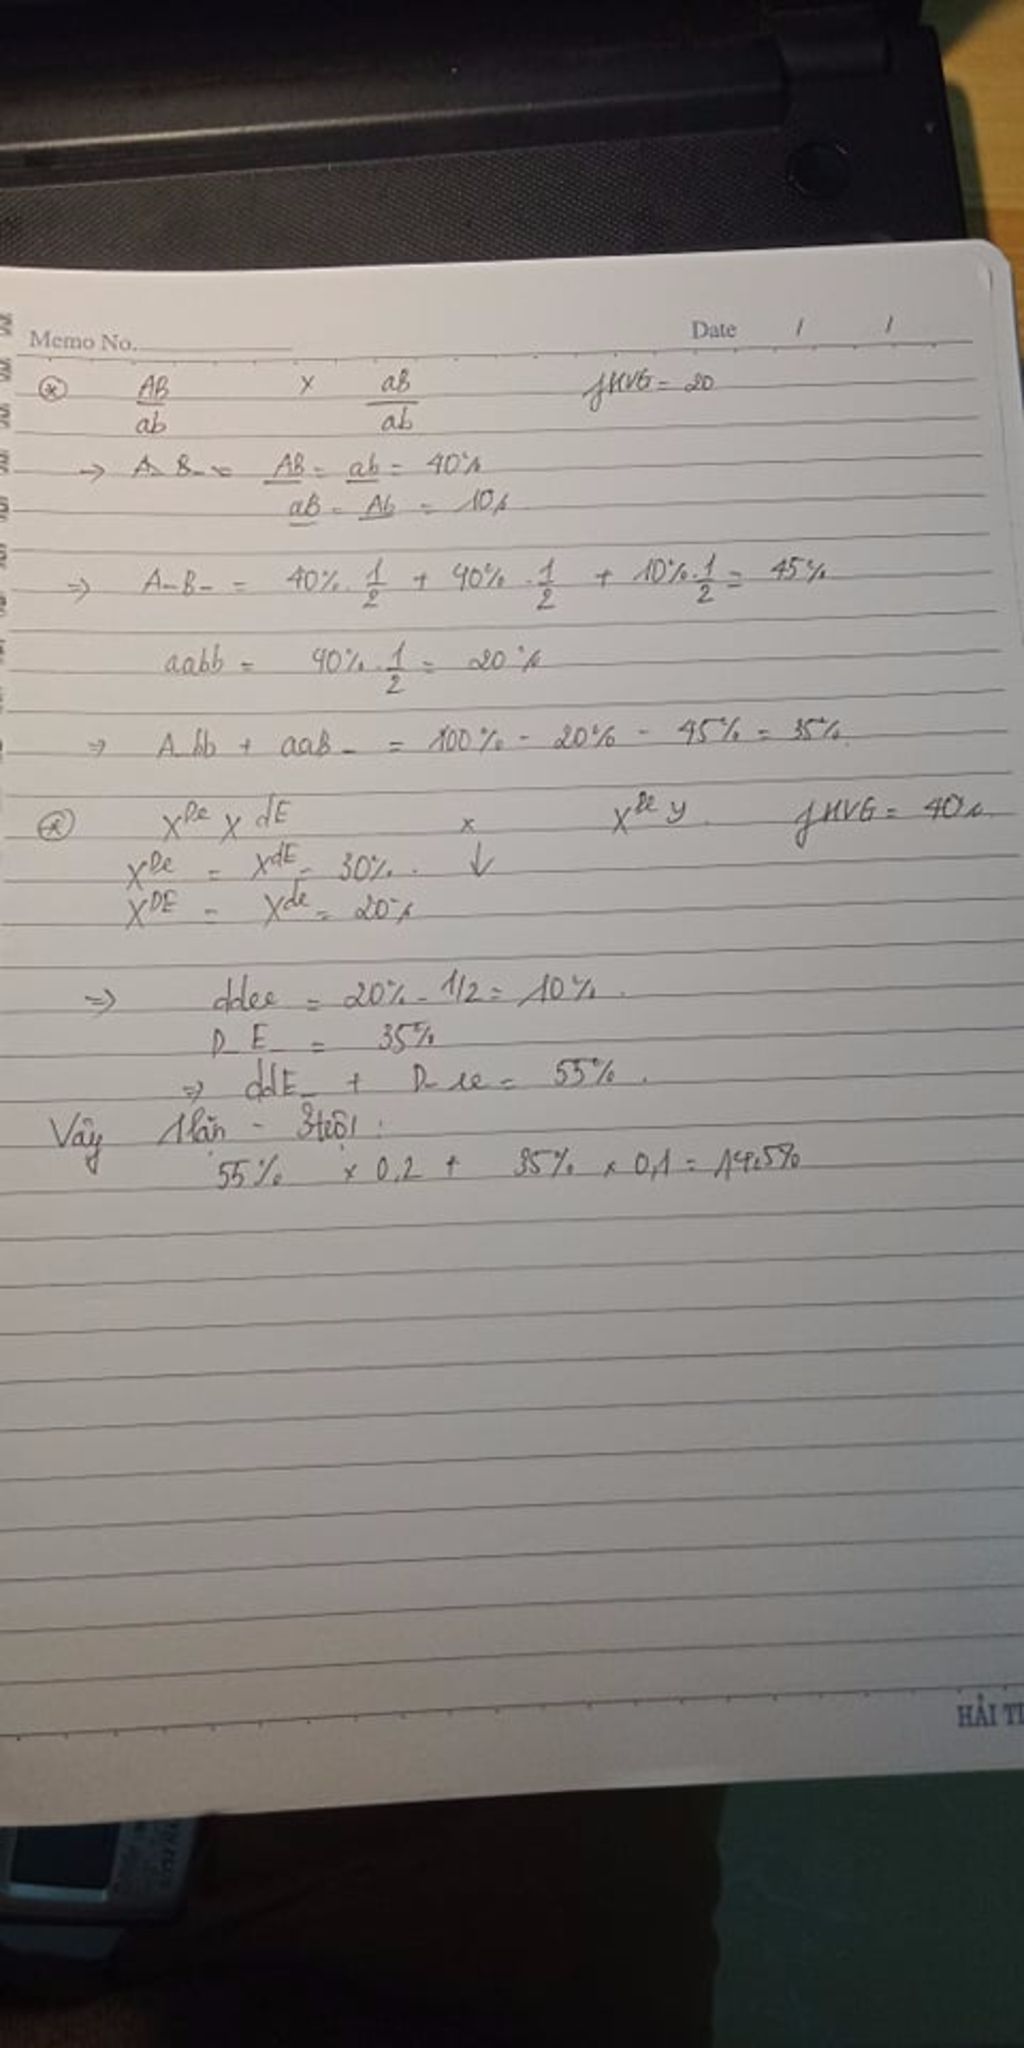 Memo No. Date / /
* AB/ab x aB/ab fHVG = 20
→ A-B- = AB = ab = 40%
aB = Ab = 10%
=> A-B- = 40%.1/2 + 40%.1/2 + 10%.1/2 = 45%
aabb = 40%.1/2 = 20%
=> A-bb + aaB- = 100% - 20% - 45% = 35%
* X^De X^dE x X^De y fHVG = 40%
X^De = X^dE = 30% ↓
X^DE = X^de = 20%
=> ddee = 20% - 1/2 = 10%.
D_E_ = 35%
=> ddE_ + D-ee = 55%.
Vậy 1lặn - 3trội:
55% x 0,2 + 35% x 0,1 = 14,5%
HẢI TI